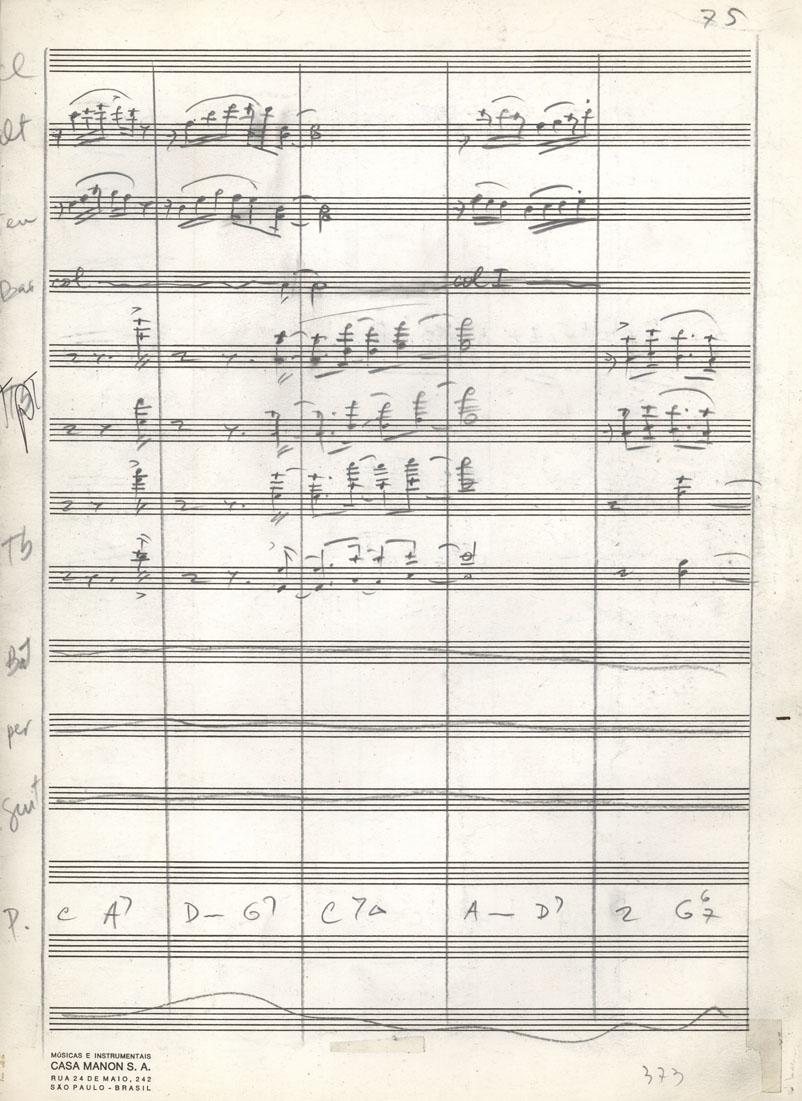 75
cl
alt
ten
Bar
col
col I
Tpt
Tb
Bat
per
Guit
P.
C A7 D— G7 C7△ A— D7 2 G 6 7
MÚSICAS E INSTRUMENTAIS
CASA MANON S. A.
RUA 24 DE MAIO, 242
SÃO PAULO - BRASIL
373